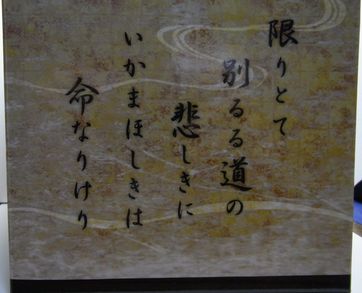 限りとて
別るる道の
悲しきに
いかまほしきは
命なりけり